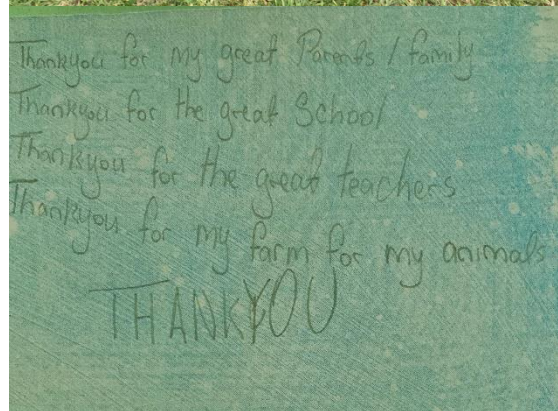 Thankyou for my great Parents / family
Thankyou for the great School
Thankyou for the great teachers
Thankyou for my farm for my animals
THANKYOU